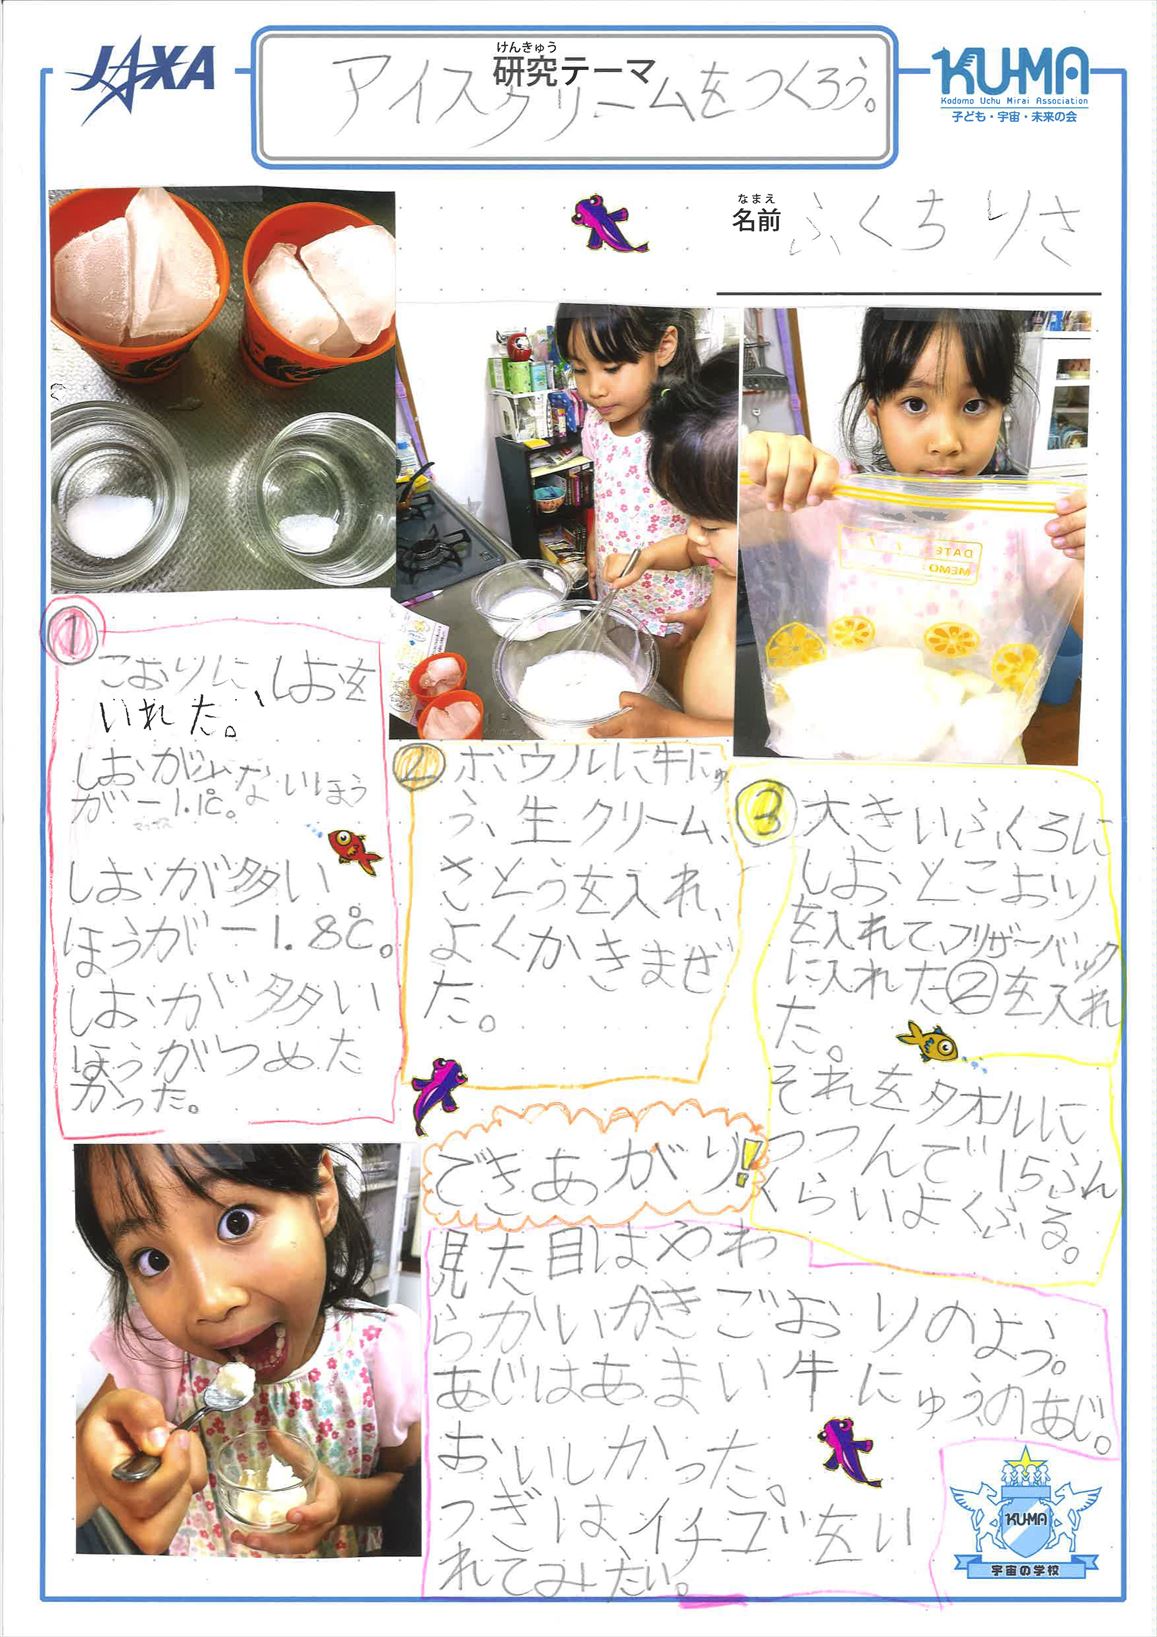 JAXA
けんきゅう
研究テーマ
アイスクリームをつくろう。
KU-MA
Kodomo Uchu Mirai Association
子ども・宇宙・未来の会
なまえ
名前
ふくちりさ
DATE
MEMO:
①
こおりに、しおを
いれた。
しおが少ないほう
が−1.1℃。
マイナス
しおが多い
ほうが−1.8℃。
しおが多い
ほうがつめた
かった。
②
ボウルに牛にゅ
う、生クリーム、
さとうを入れ、
よくかきまぜ
た。
③
大きいふくろに
しおとこおり
を入れて、フリザーバック
に入れた②を入れ
た。
それをタオルに
つつんで15ふん
くらいよくふる。
できあがり!
見た目はやわ
らかいかきごおりのよう。
あじはあまい牛にゅうのあじ。
おいしかった。
つぎはイチゴをい
れてみたい。
KU-MA
宇宙の学校